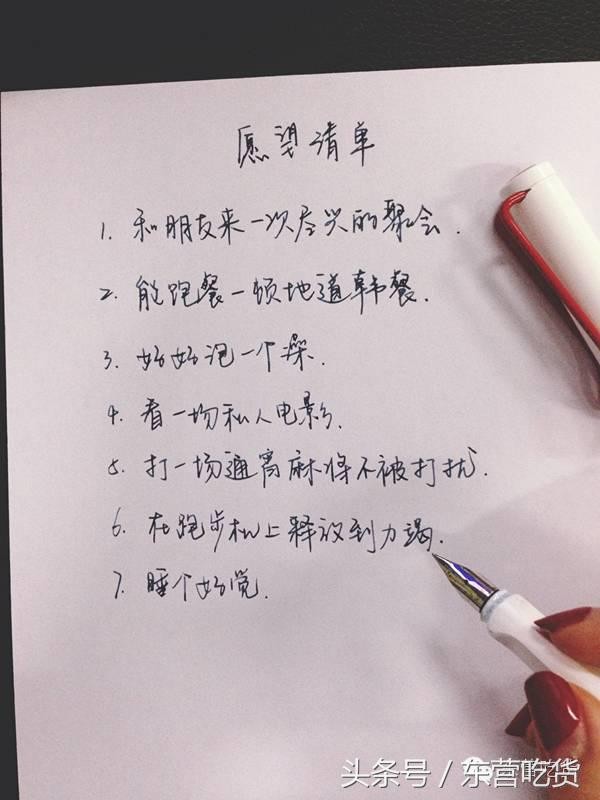 愿望清单
1. 和朋友来一次尽兴的聚会.
2. 能饱餐一顿地道韩餐.
3. 好好泡一个澡.
4. 看一场私人电影.
5. 打一场通宵麻将不被打扰.
6. 在跑步机上释放到力竭.
7. 睡个好觉.
头条号 / 东营吃货